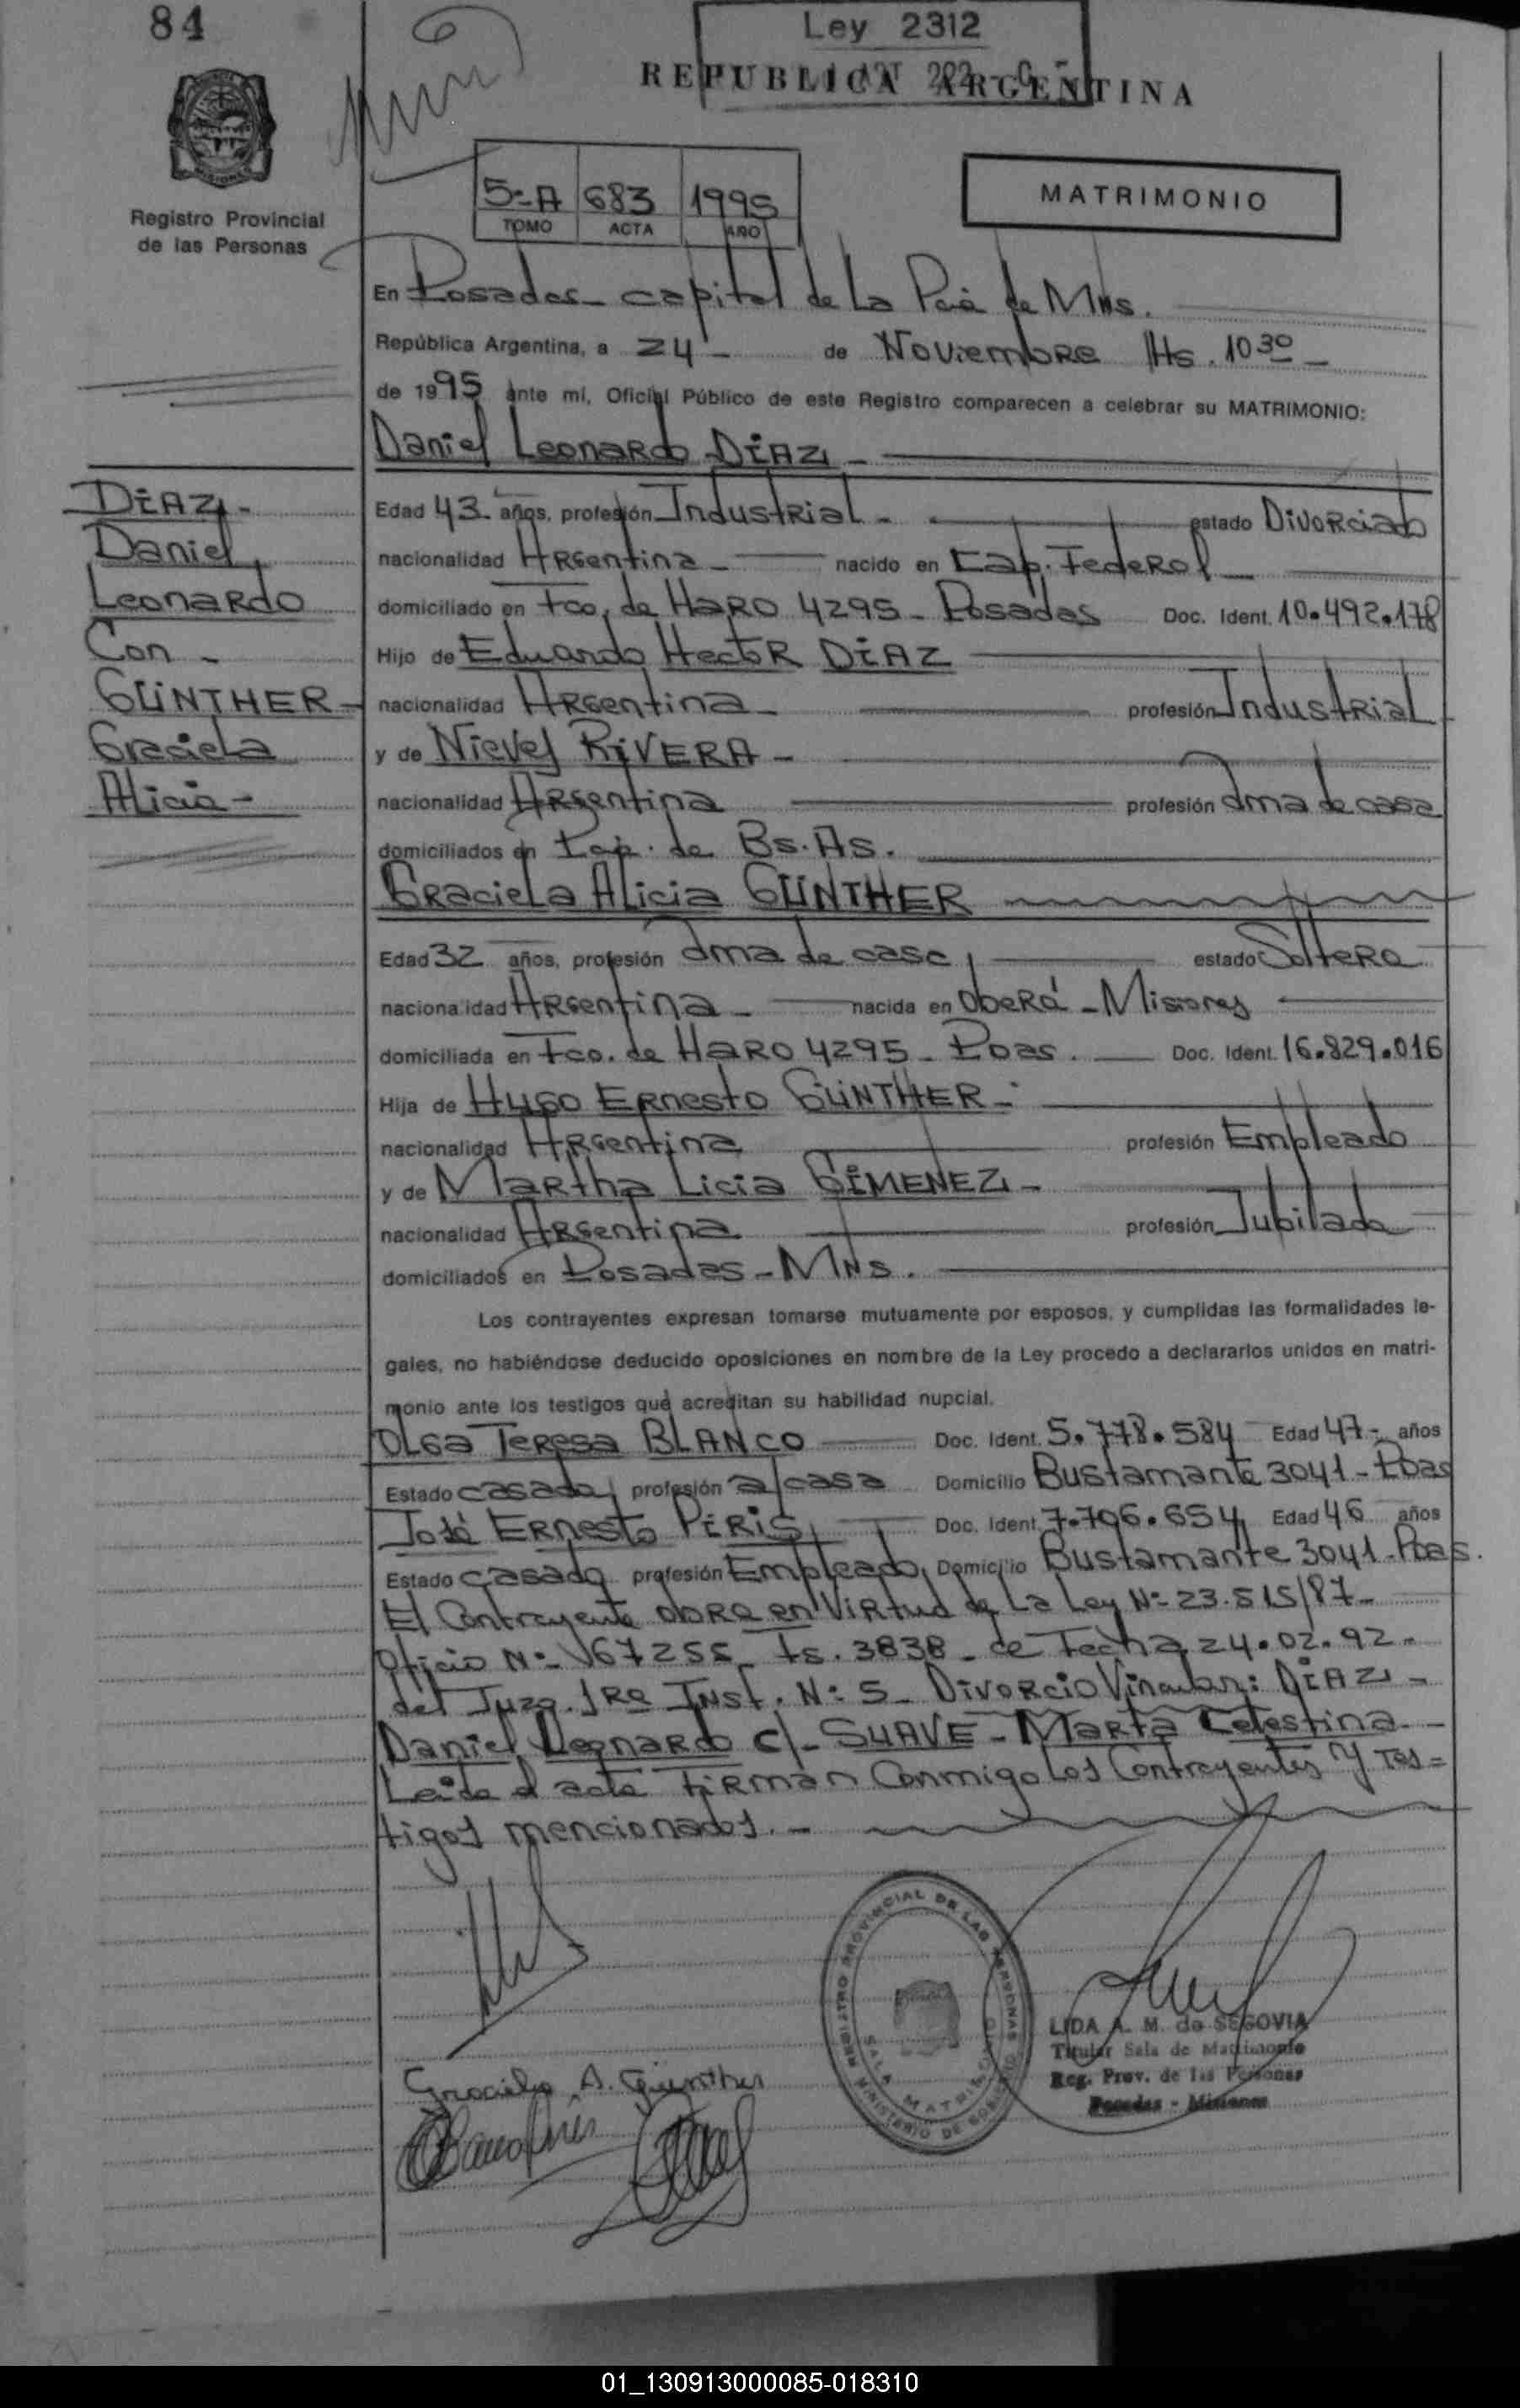 84
Ley 2312
REPUBLICA ARGENTINA
MISIONES
Registro Provincial
de las Personas
5-A 683 1995
TOMO ACTA AÑO
MATRIMONIO
En Posadas - capital de La Pcia de Mns.
República Argentina, a 24 - de Noviembre Hs. 10 30 -
de 1995 ante mí, Oficial Público de este Registro comparecen a celebrar su MATRIMONIO:
Daniel Leonardo DIAZ -
DIAZ -
Daniel
Leonardo
Con -
GÜNTHER -
Graciela
Alicia -
Edad 43 - años, profesión Industrial - estado Divorciado
nacionalidad Argentina - nacido en Cap. Federal
domiciliado en Fco. de Haro 4295 - Posadas Doc. Ident. 10.492.178
Hijo de Eduardo Hector DIAZ
nacionalidad Argentina - profesión Industrial
y de Nieves RIVERA -
nacionalidad Argentina profesión Ama de casa
domiciliados en Pcia. de Bs. As.
Graciela Alicia GÜNTHER
Edad 32 años, profesión Ama de casa estado Soltera
nacionalidad Argentina - nacida en Oberá - Misiones
domiciliada en Fco. de Haro 4295 - Pdas. Doc. Ident. 16.829.016
Hija de Hugo Ernesto GÜNTHER -
nacionalidad Argentina profesión Empleado
y de Martha Licia GIMENEZ -
nacionalidad Argentina profesión Jubilada
domiciliados en Posadas - Mns.
Los contrayentes expresan tomarse mutuamente por esposos, y cumplidas las formalidades le-
gales, no habiéndose deducido oposiciones en nombre de la Ley procedo a declararlos unidos en matri-
monio ante los testigos que acreditan su habilidad nupcial.
Olga Teresa BLANCO Doc. Ident. 5.778.584 Edad 47 - años
Estado casada profesión a/casa Domicilio Bustamante 3041 - Pdas
José Ernesto PERIS Doc. Ident. 7.706.654 Edad 46 años
Estado casado profesión Empleado Domicilio Bustamante 3041 - Pdas.
El Contrayente obra en Virtud de La Ley Nº 23.515/87 -
Oficio Nº 67255 fs. 3838 - de Fecha 24.02.92 -
del Juzg. 1Ra Inst. Nº 5 - Divorcio Vincular: DIAZ -
Daniel Leonardo c/- SUAVE - Marta Celestina -
Leida el acta Firman Conmigo Los Contrayentes y Tes=
tigos mencionados. -
Graciela A. Günther
REGISTRO PROVINCIAL DE LAS PERSONAS
SALA MATRIMONIO
MINISTERIO DE GOBIERNO
LIDA A. M. de SEGOVIA
Titular Sala de Matrimonio
Reg. Prov. de las Personas
Posadas - Misiones
01_130913000085-018310